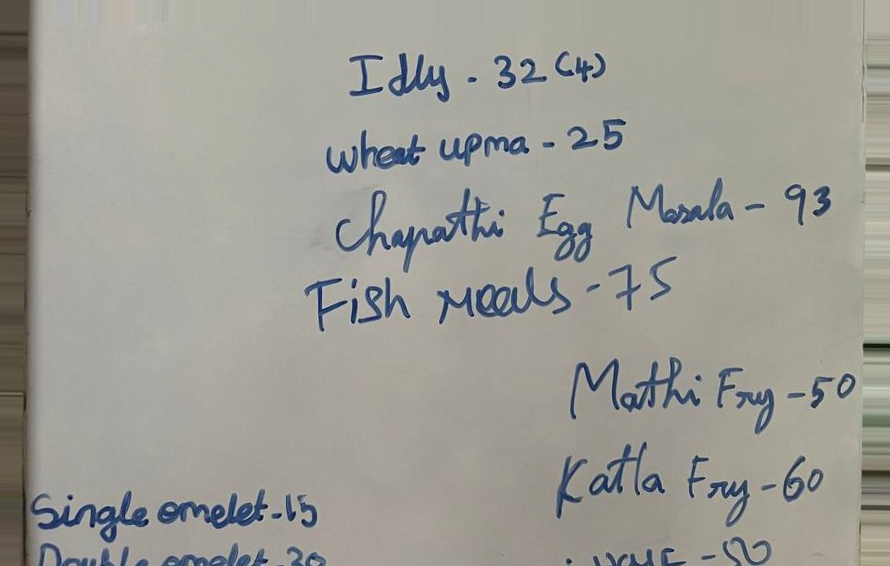 Idly - 32 (4)
wheat upma - 25
Chapathi Egg Masala - 93
Fish meals - 75
Mathi Fry - 50
Katla Fry - 60
Single omelet - 15
Double omelet - 30
- 50